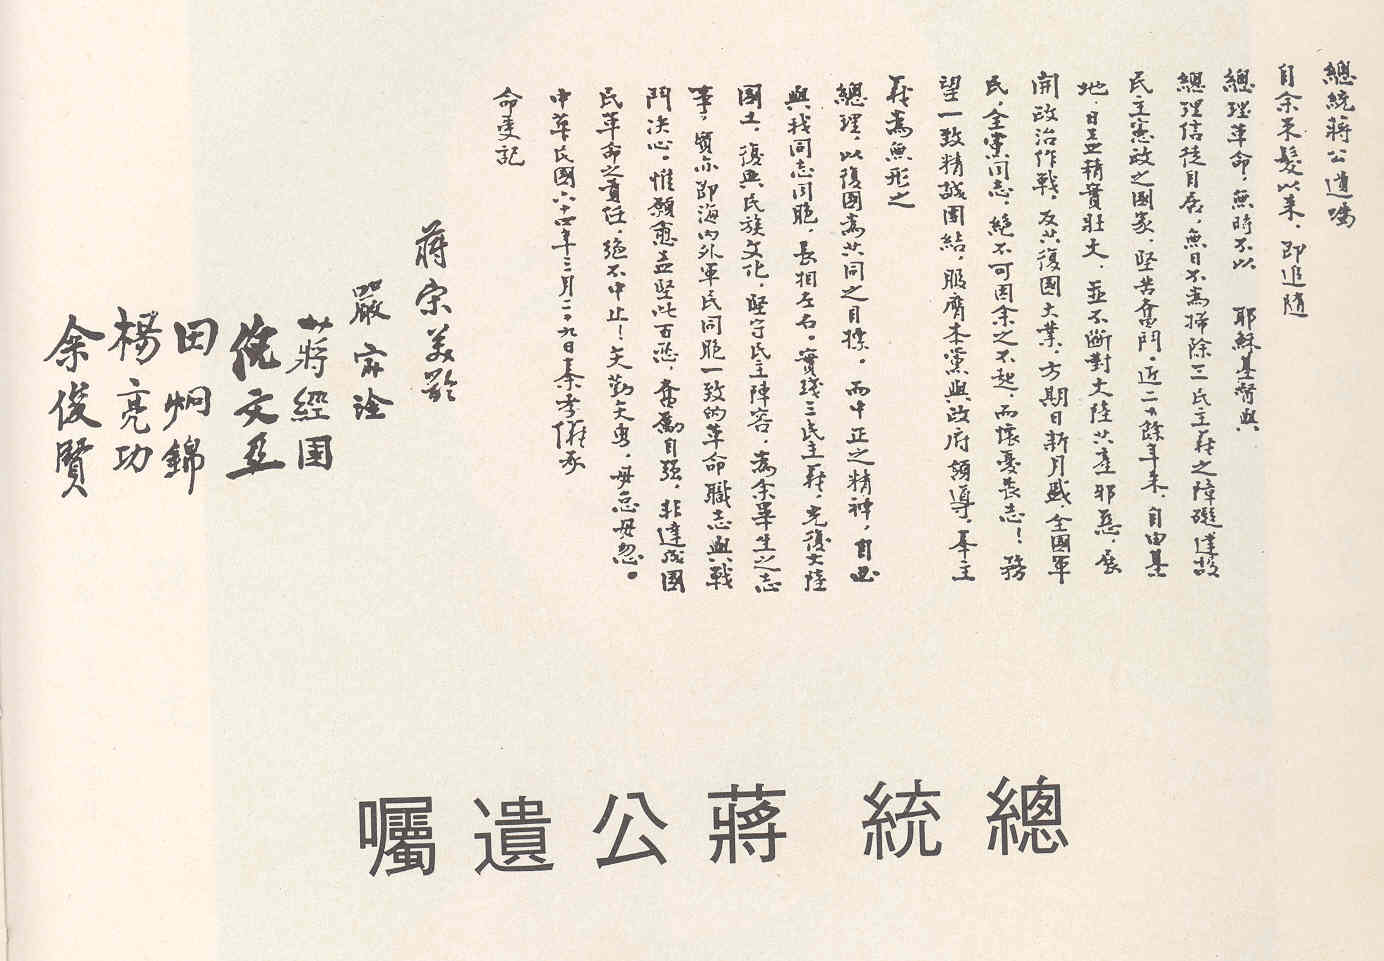 總統蔣公遺囑
自余束髮以來，即追隨
總理革命，無時不以 耶穌基督與
總理信徒自居，無日不為掃除三民主義之障礙，建設
民主憲政之國家，堅苦奮鬥。近二十餘年來，自由基
地，日益精實壯大，並不斷對大陸共產邪惡，展
開政治作戰，反共復國大業，方期日新月盛，全國軍
民，全黨同志，絕不可因余之不起，而懷憂喪志！務
望一致精誠團結，服膺本黨與政府領導，奉主
義為無形之
總理，以復國為共同之目標。而中正之精神，自必
與我同志同胞，長相左右。實踐三民主義，光復大陸
國土，復興民族文化，堅守民主陣容，為余畢生之志
事，實亦即海內外軍民同胞一致的革命職志與戰
鬥決心。惟願愈益堅此百忍，奮勵自強，非達成國
民革命之責任，絕不中止！矢勤矢勇，毋怠毋忽。
中華民國六十四年三月二十九日秦孝儀承
命受記
蔣宋美齡
嚴家淦
蔣經國
倪文亞
田炯錦
楊亮功
余俊賢
總統 蔣公遺囑